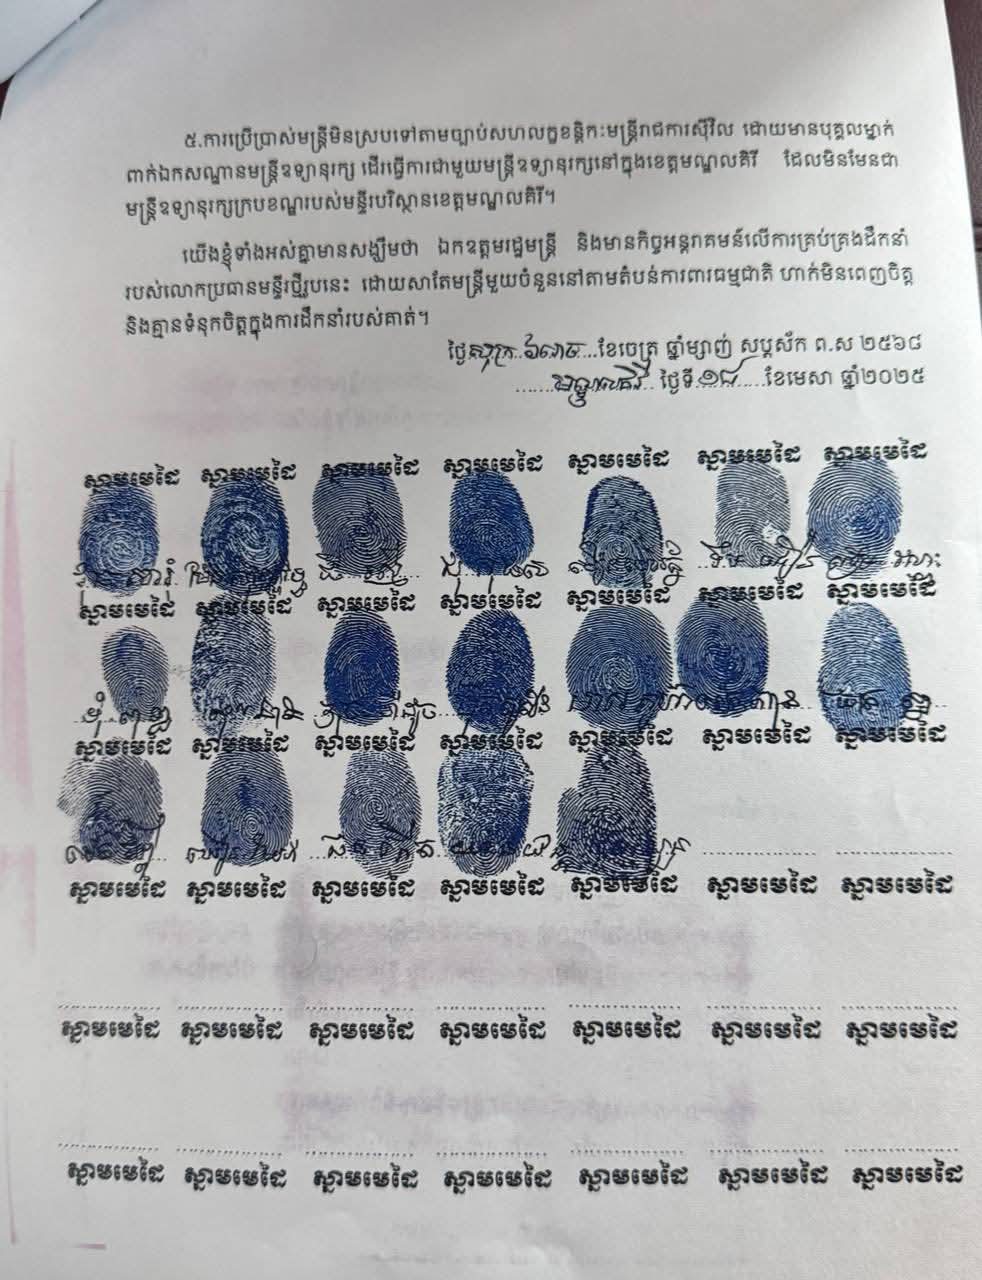 ៥.ការប្រើប្រាស់មន្ត្រីមិនស្របទៅតាមច្បាប់សហលក្ខខន្តិកៈមន្ត្រីរាជការស៊ីវិល ដោយមានបុគ្គលម្នាក់
ពាក់ឯកសណ្ឋានមន្ត្រីឧទ្យានុរក្ស ដើរធ្វើការជាមួយមន្ត្រីឧទ្យានុរក្សនៅក្នុងខេត្តមណ្ឌលគិរី ដែលមិនមែនជា
មន្ត្រីឧទ្យានុរក្សក្របខណ្ឌរបស់មន្ទីរបរិស្ថានខេត្តមណ្ឌលគិរី។
យើងខ្ញុំទាំងអស់គ្នាមានសង្ឃឹមថា ឯកឧត្តមរដ្ឋមន្ត្រី និងមានកិច្ចអន្តរាគមន៍លើការគ្រប់គ្រងដឹកនាំ
របស់លោកប្រធានមន្ទីរថ្មីរូបនេះ ដោយសារតែមន្ត្រីមួយចំនួននៅតាមតំបន់ការពារធម្មជាតិ ហាក់មិនពេញចិត្ត
និងគ្មានទំនុកចិត្តក្នុងការដឹកនាំរបស់គាត់។
ថ្ងៃសុក្រ ៦រោច ខែចេត្រ ឆ្នាំម្សាញ់ សប្តស័ក ព.ស ២៥៦៨
មណ្ឌលគិរី ថ្ងៃទី១៨ ខែមេសា ឆ្នាំ២០២៥
ស្នាមមេដៃ ស្នាមមេដៃ ស្នាមមេដៃ ស្នាមមេដៃ ស្នាមមេដៃ ស្នាមមេដៃ ស្នាមមេដៃ
ស្នាមមេដៃ ស្នាមមេដៃ ស្នាមមេដៃ ស្នាមមេដៃ ស្នាមមេដៃ ស្នាមមេដៃ ស្នាមមេដៃ
ស្នាមមេដៃ ស្នាមមេដៃ ស្នាមមេដៃ ស្នាមមេដៃ ស្នាមមេដៃ ស្នាមមេដៃ ស្នាមមេដៃ
ស្នាមមេដៃ ស្នាមមេដៃ ស្នាមមេដៃ ស្នាមមេដៃ ស្នាមមេដៃ ស្នាមមេដៃ ស្នាមមេដៃ
ស្នាមមេដៃ ស្នាមមេដៃ ស្នាមមេដៃ ស្នាមមេដៃ ស្នាមមេដៃ ស្នាមមេដៃ ស្នាមមេដៃ
ស្នាមមេដៃ ស្នាមមេដៃ ស្នាមមេដៃ ស្នាមមេដៃ ស្នាមមេដៃ ស្នាមមេដៃ ស្នាមមេដៃ